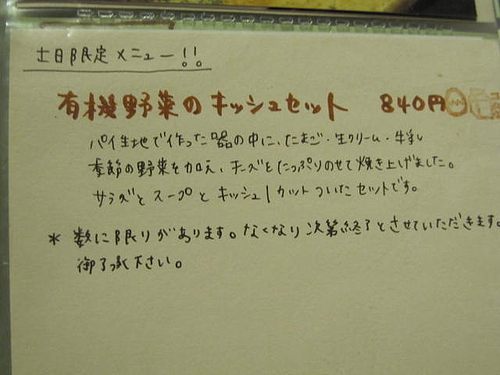 土日限定メニュー!!
有機野菜のキッシュセット 840円
パイ生地で作った器の中に、たまご・生クリーム・牛乳
季節の野菜を加え、チーズをたっぷりのせて焼き上げました。
サラダとスープとキッシュ1カットついたセットです。
* 数に限りがあります。なくなり次第終了とさせていただきます。
御了承下さい。